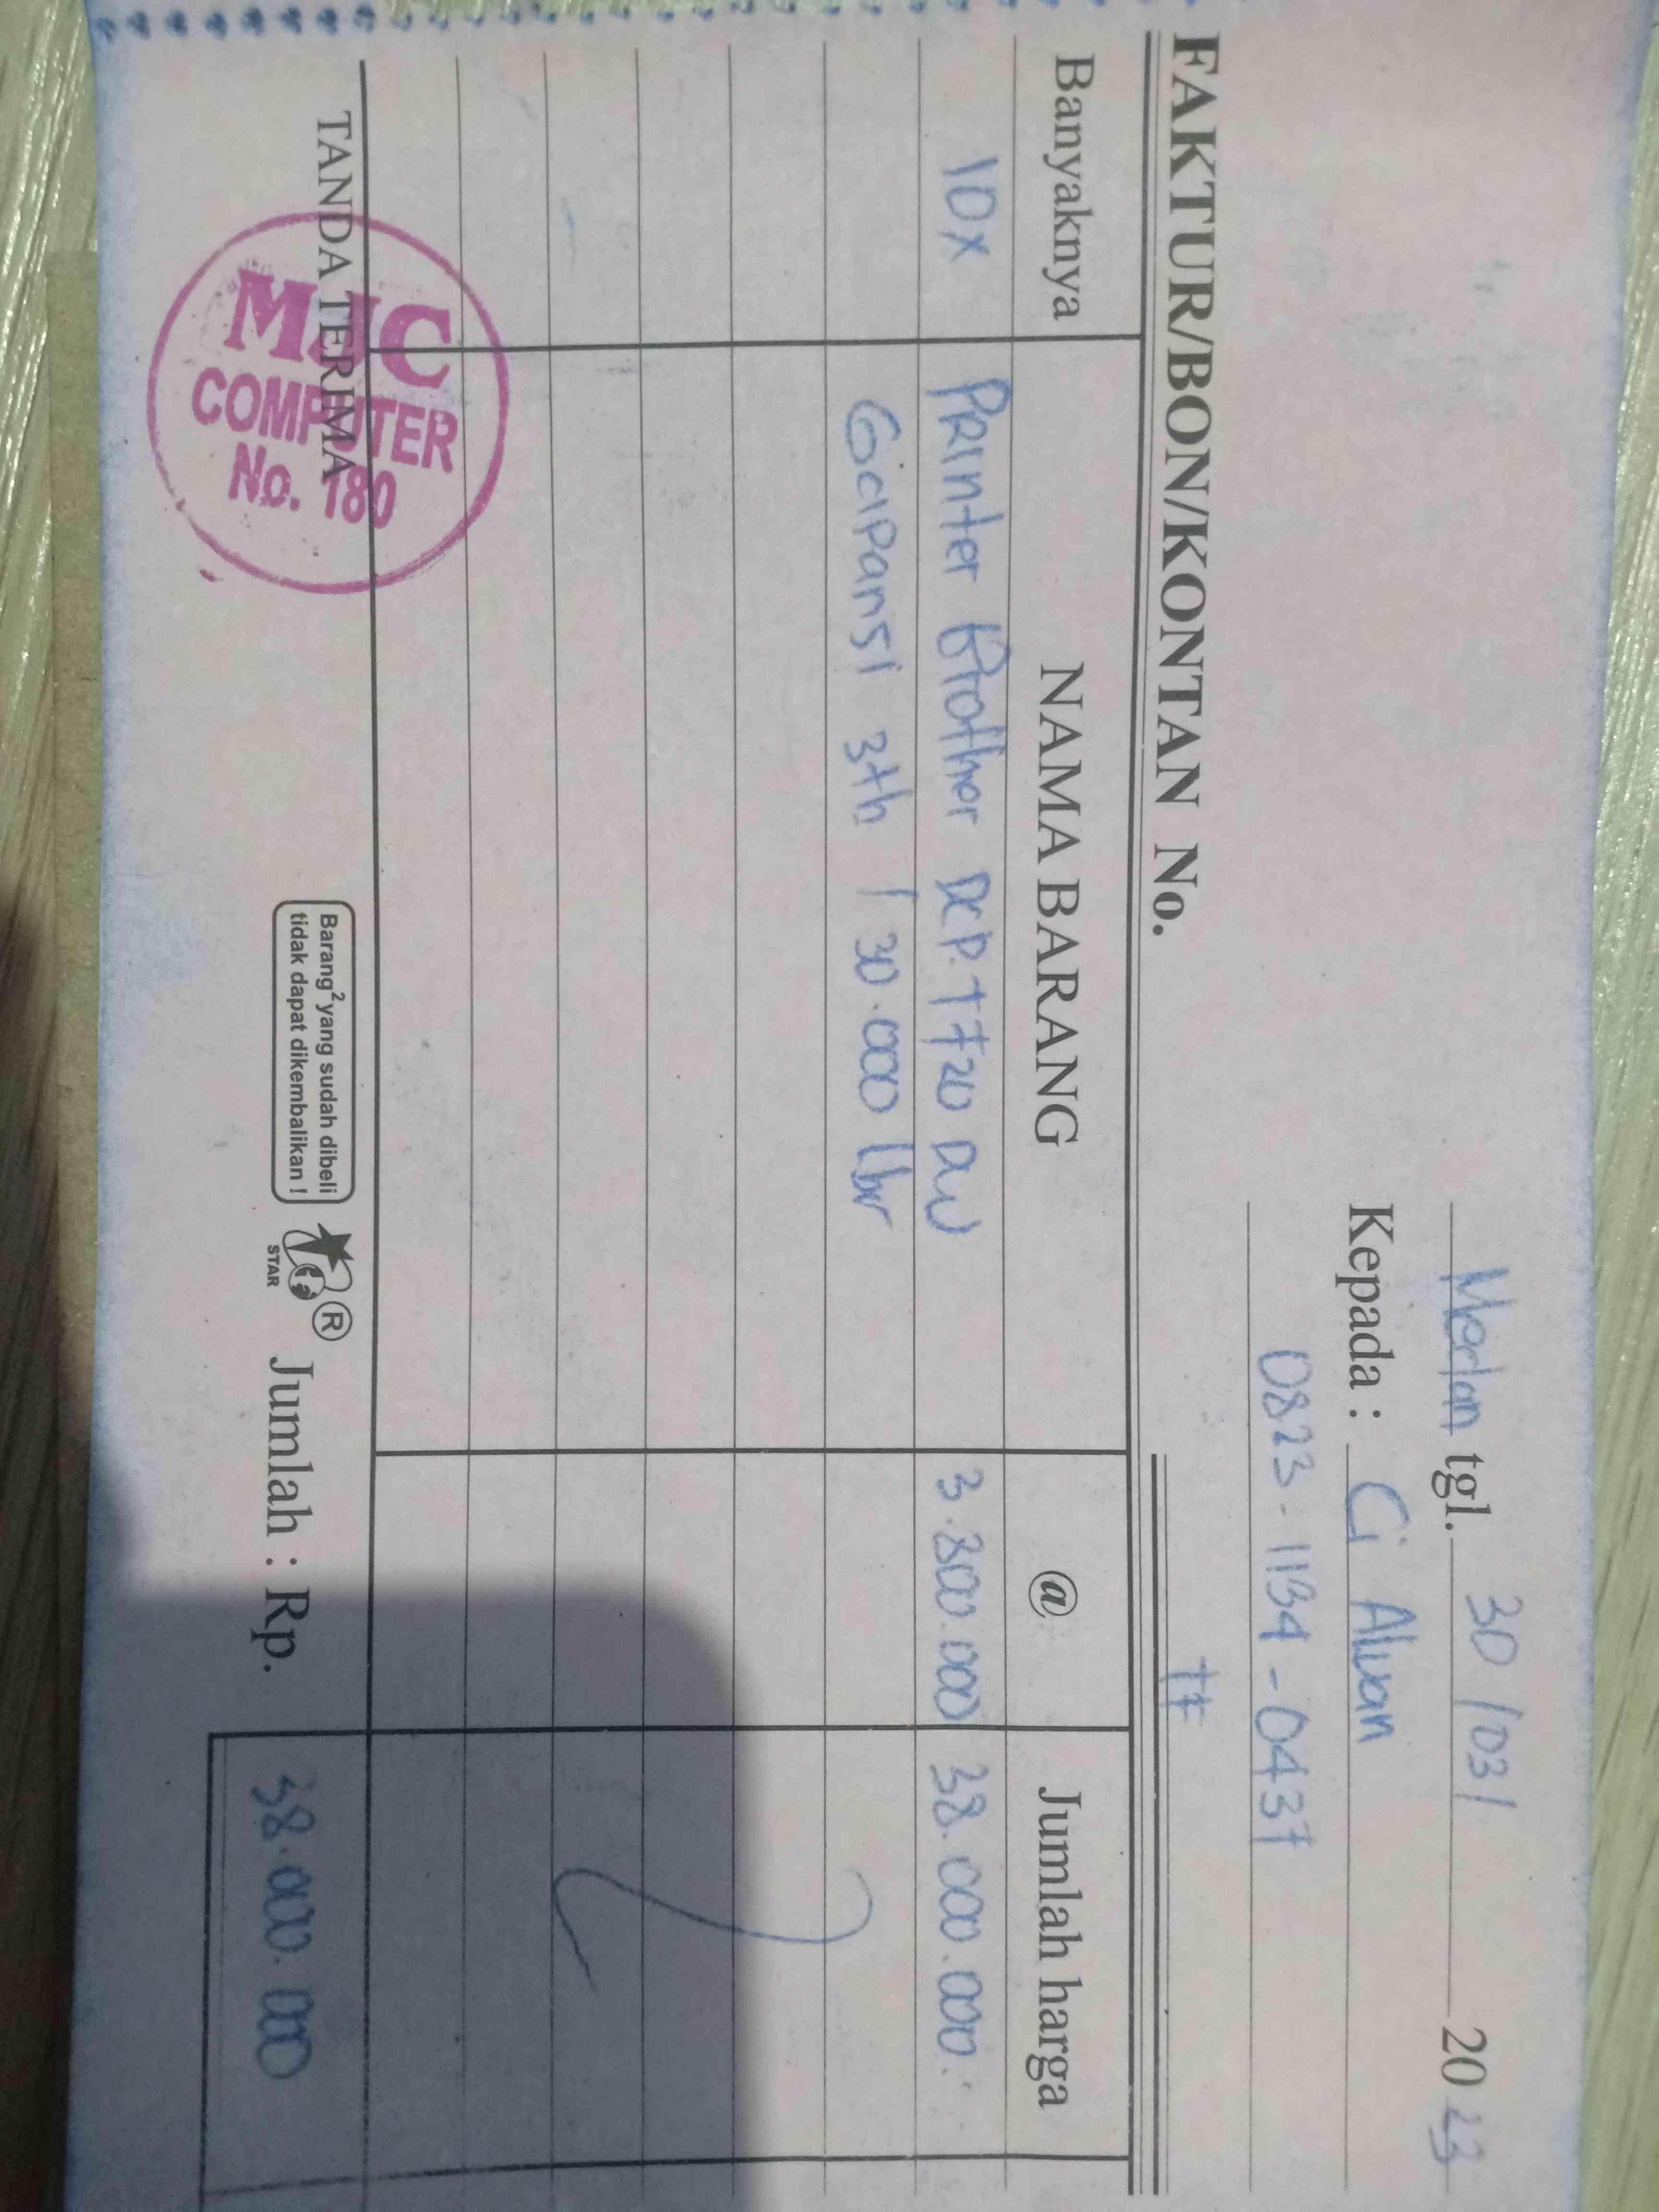 Medan tgl. 30 / 03 / 20 23
Kepada : Ci Alvan
0823 - 1134 - 0437
FAKTUR/BON/KONTAN No.
TF
Banyaknya NAMA BARANG @ Jumlah harga
10x Printer Brother DCP. T720 DW 3.800.000 38.000.000
Garansi 3th / 30.000 lbr
TANDA TERIMA
MJC
COMPUTER
No. 180
Barang2 yang sudah dibeli
tidak dapat dikembalikan !
STAR
®
Jumlah : Rp. 38.000.000